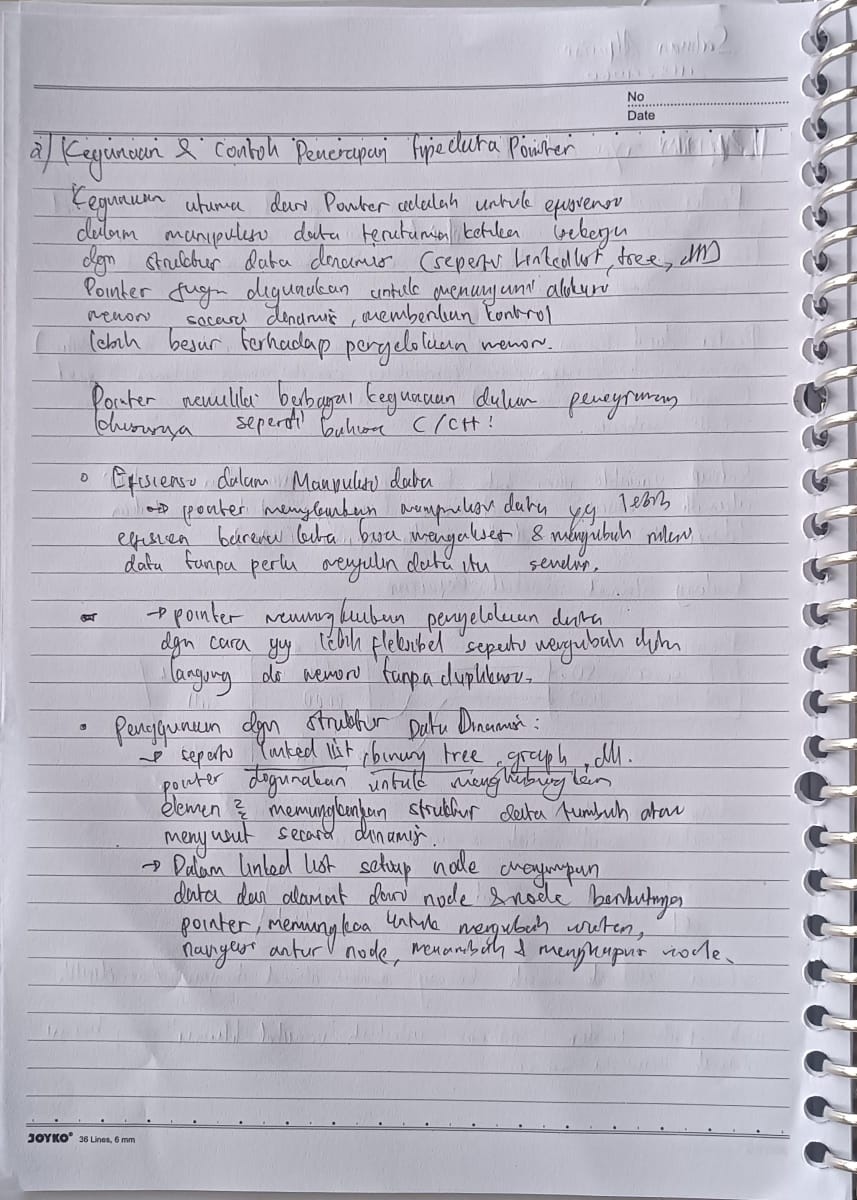 No
Date
a) Kegunaan & Contoh Penerapan tipe data Pointer
Kegunaan utama dari Pointer adalah untuk efisiensi
dalam manipulasi data terutama ketika bekerja
dgn struktur data dinamis (seperti linkedlist, tree, dll)
Pointer juga digunakan untuk menunjang alokasi
memori secara dinamis, memberikan kontrol
lebih besar terhadap pengelolaan memori.
Pointer memiliki berbagai kegunaan dalam
khususnya seperti bahasa C/C++:
Efisiensi dalam Manipulasi data
→ pointer memungkinkan manipulasi data yg lebih
efisien karena kita bisa mengakses & mengubah nilai
data tanpa perlu menyalin data itu sendiri.
→ pointer memungkinkan pengelolaan data
dgn cara yg lebih fleksibel seperti mengubah data
langsung di memori tanpa duplikasi.
• Penggunaan dgn struktur Data Dinamis:
→ seperti linked list, binary tree, graph, dll.
pointer digunakan untuk menghubungkan
elemen 2 memungkinkan struktur data tumbuh atau
menyusut secara dinamis.
→ Dalam linked list setiap node menyimpan
data dan alamat dari node & node berikutnya
pointer, untuk mengubah urutan,
antar node, menambah & menghapus node.
JOYKO® 36 Lines, 6 mm